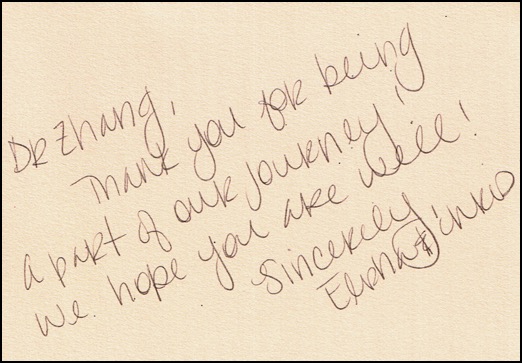 Dr Zhang,
Thank you for being
a part of our journey!
we hope you are well!
Sincerely